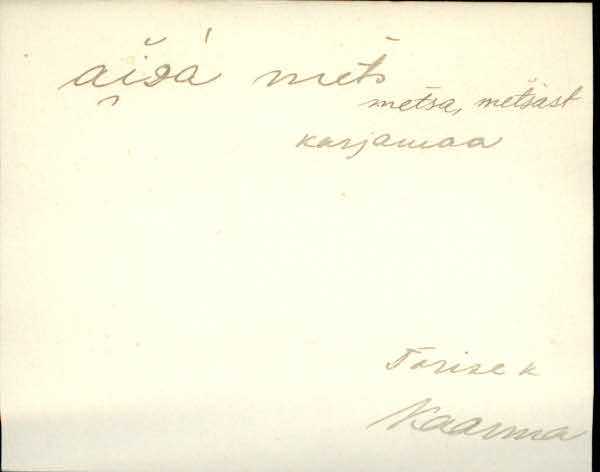 aisa mets
metsa, metsast
karjamaa
Torise k
Kaarma